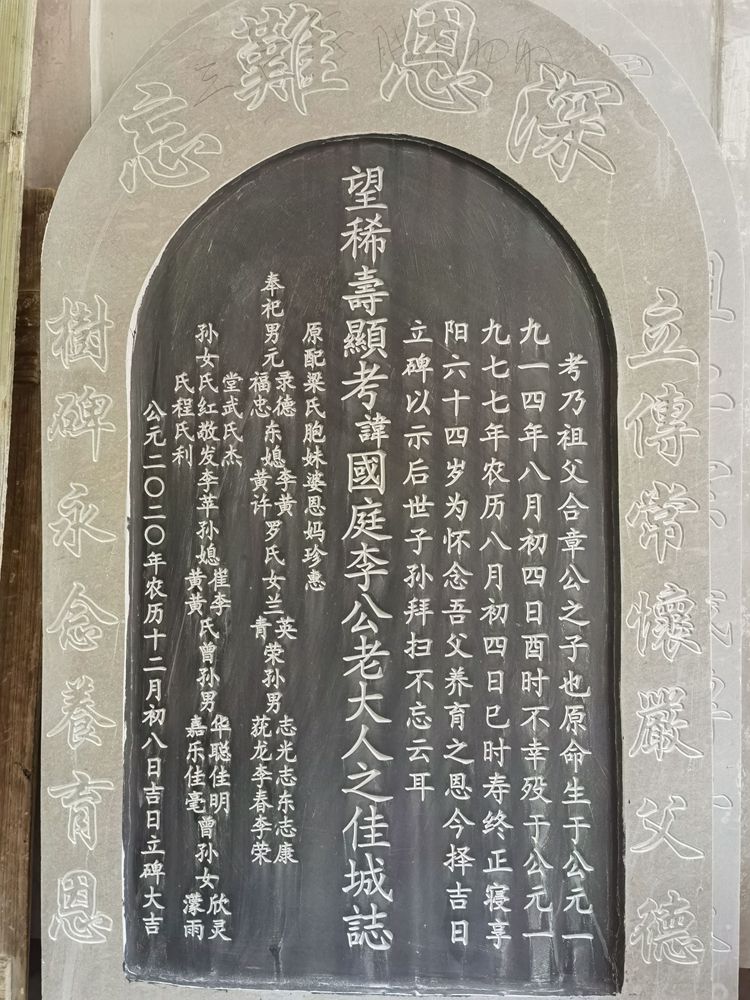 深恩難忘
立傳常懷嚴父德
考乃祖父合章公之子也原命生于公元一
九一四年八月初四日酉时不幸殁于公元一
九七七年农历八月初四日巳时寿终正寝享
阳六十四岁为怀念吾父养育之恩今择吉日
立碑以示后世子孙拜扫不忘云耳
望稀壽顯考諱國庭李公老大人之佳城誌
原配梁氏胞妹婆恩妈珍惠
奉祀男元福忠录德东媳黄许李黄罗氏女兰青英荣孙男莸龙李春李荣志光志东志康
孙女氏红敬发李苹孙媳黄黄崔李氏曾孙男嘉乐佳毫华聪佳明曾孙女濛雨欣灵
堂武氏杰
氏程氏利
公元二〇二〇年农历十二月初八日吉日立碑大吉
樹碑永念養育恩